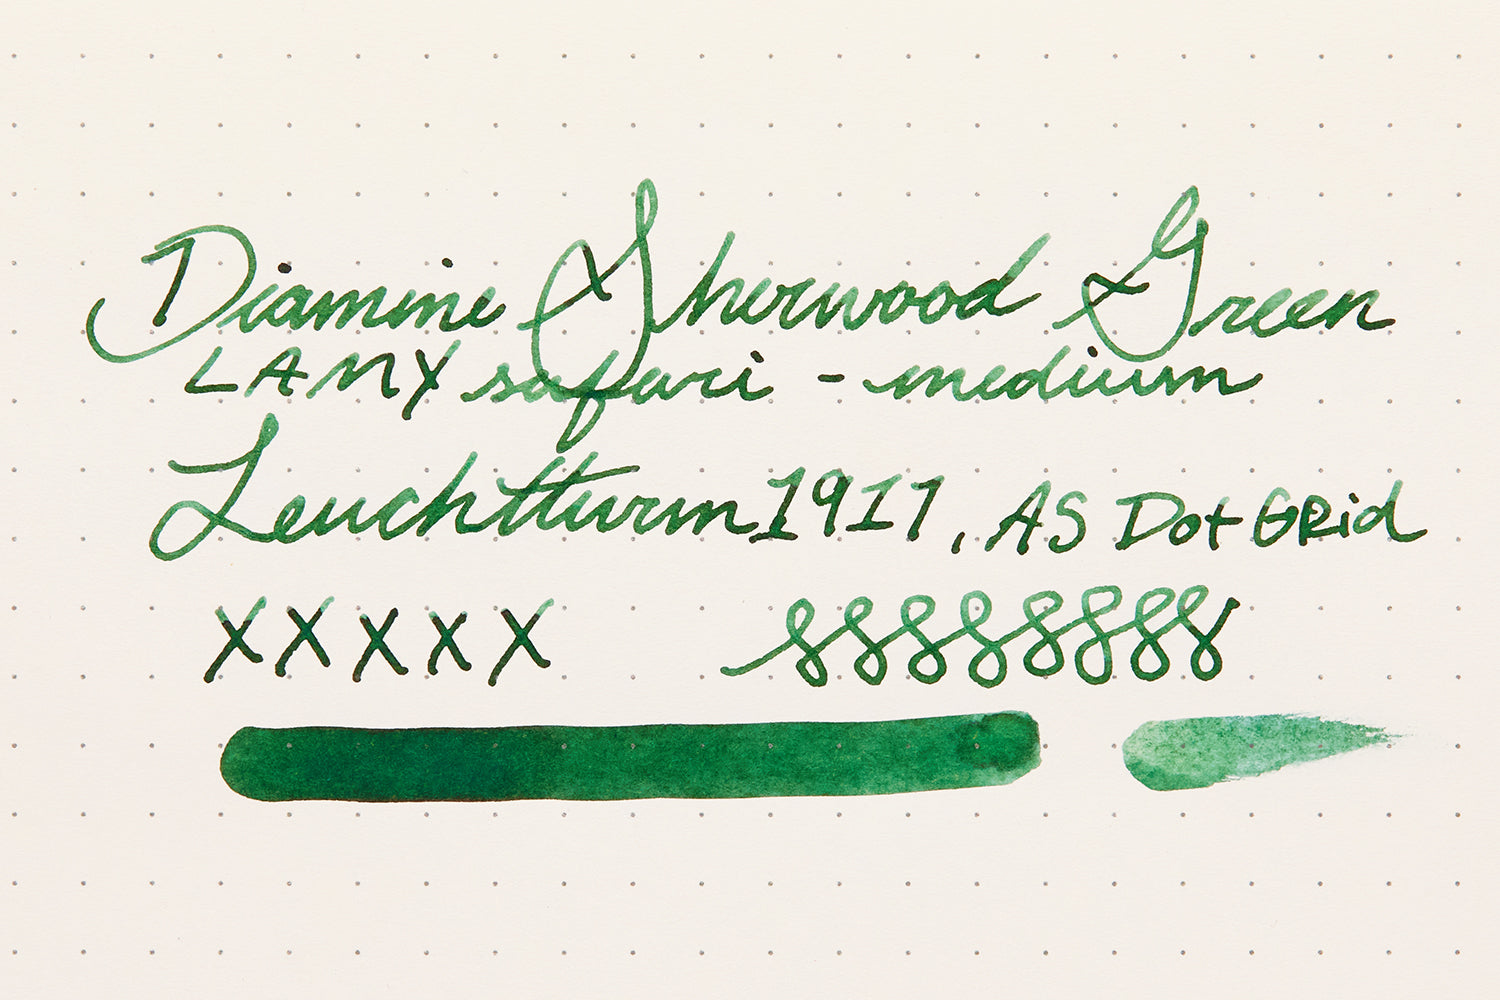 Diamine Sherwood Green
LAMY safari - medium
Leuchtturm1917, A5 Dot Grid
XXXXX 88888888